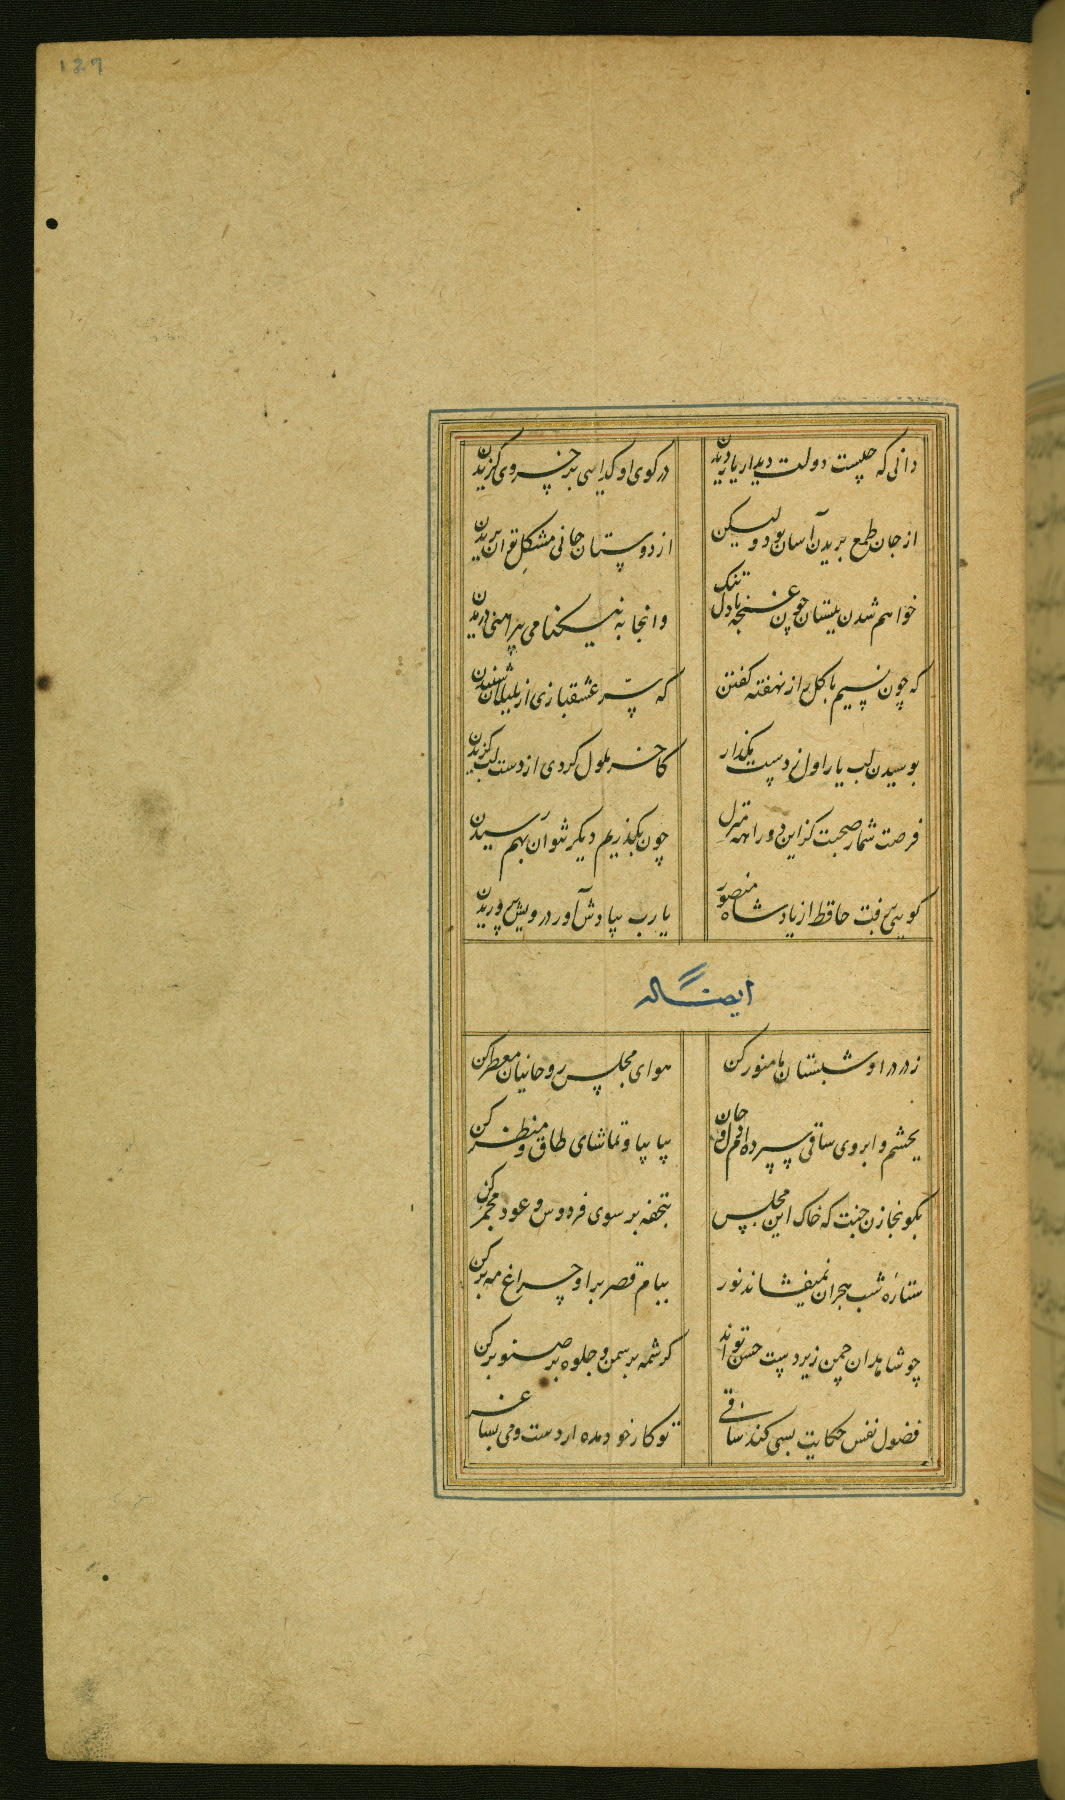 127
دانی که چیست دولت دیدار یار دیدن
در کوی او گدایی بر خسروی گزیدن
از جان طمع بریدن آسان بود ولیکن
از دوستان جانی مشکل توان بریدن
خواهم شدن ببستان چون غنچه با دل تنک
وانجا به نیکنامی پیراهنی دریدن
که چون نسیم با کل راز نهفته کفتن
که سرّ عشقبازی از بلبلان شنیدن
بوسیدن لب یار اول ز دست مکذار
کاخر ملول کردی از دست لب کزیدن
فرصت شمار صحبت کز این دو راهه منزل
چون بکذریم دیکر نتوان بهم رسیدن
کویی برفت حافظ از یاد شاه منصور
یا رب بیادش آور درویش پروریدن
ایضا له
ز در درا و شبستان ما منور کن
هوای مجلس روحانیان معطر کن
بچشم و ابروی ساقی سپرده ام دل و جان
بیا بیا و تماشای طاق و منظر کن
بکو بخازن جنت که خاک این مجلس
بتحفه بر سوی فردوس و عود مجمر کن
ستاره شب هجران نمیفشاند نور
ببام قصر برا و چراغ مه بر کن
چو شاهدان چمن زیردست حسن تو اند
کرشمه بر سمن و جلوه بر صنوبر کن
فضول نفس حکایت بسی کند ساقی
تو کار خود مده از دست و می بساغر